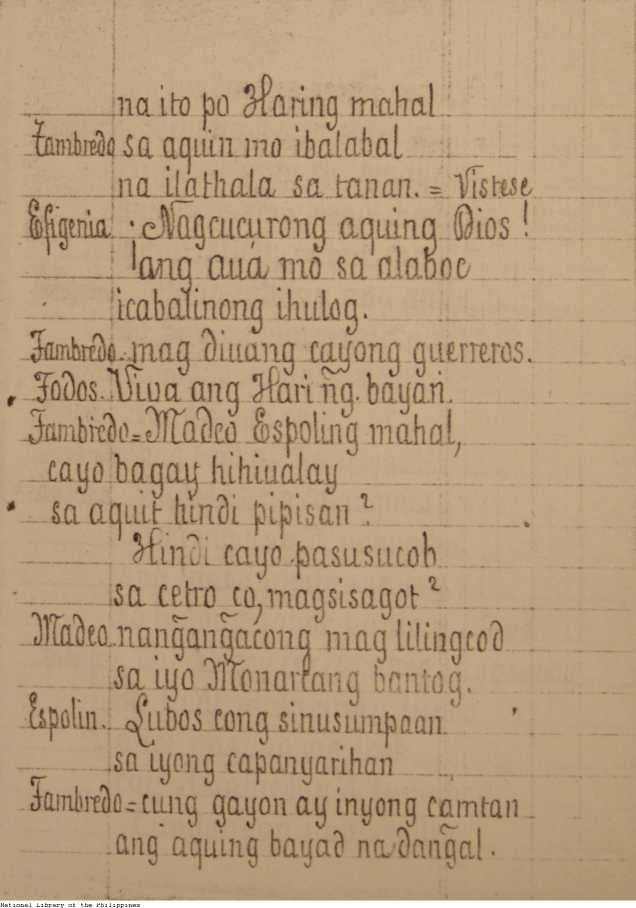 na ito po Haring mahal
Fambredo sa aquin mo ibalabal
na ilathala sa tanan. = Vistese
Efigenia. Nagcucurong aquing Dios!
ang auá mo sa alaboc
icabalinong ihulog.
Fambredo. mag diuang cayong guerreros.
Todos. Viva ang Hari ñg. bayan.
Fambredo = Madeo Espoling mahal,
cayo bagay hihiualay
sa aquit hindi pipisan?
Hindi cayo pasusucob
sa cetro co, magsisagot?
Madeo. nang̃ang̃acong mag lilingcod
sa iyo Monarcang bantog.
Espolin. Lubos cong sinusumpaan
sa iyong capanyarihan
Fambredo = cung gayon ay inyong camtan
ang aquing bayad na dang̃al.
National Library of the Philippines